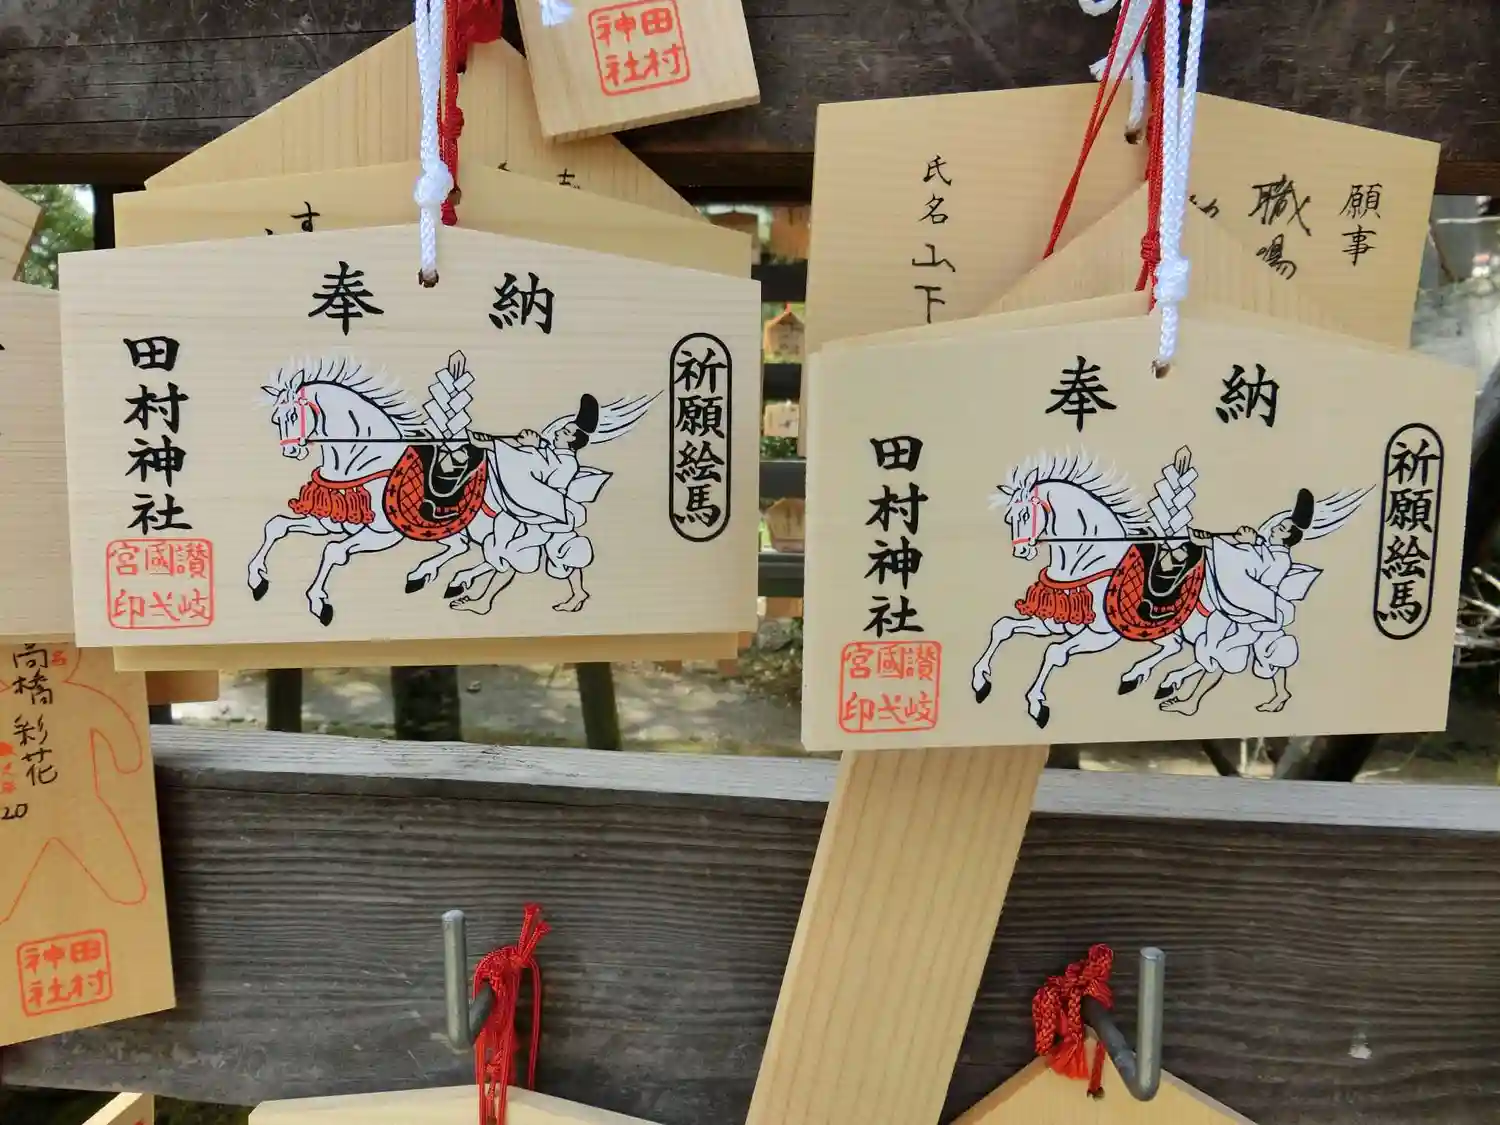 田村
神社
奉納
田村神社
祈願絵馬
讃岐
國弌
宮印
す
氏名 山下
願事
職場
奉納
田村神社
祈願絵馬
讃岐
國弌
宮印
名
高橋 彩花
20
田村
神社